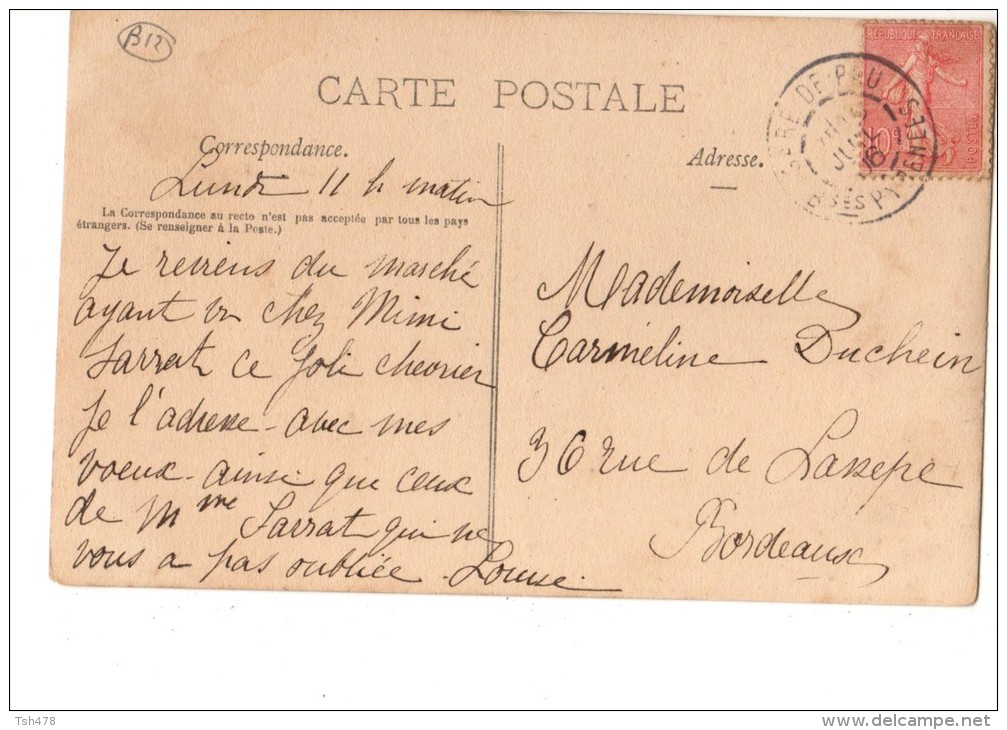 B12
CARTE POSTALE
RÉPUBLIQUE FRANÇAISE
10
GARE DE PAU
BSES PYRENEES
Correspondance.
Adresse.
Lundi 11 h matin
La Correspondance au recto n'est pas acceptée par tous les pays
étrangers. (Se renseigner à la Poste.)
Je reviens du marché
ayant vu chez Mimi
Sarrat ce joli chevrier
Je l'adresse - avec mes
voeux - ainsi que ceux
de Mme Sarrat qui ne
vous a pas oubliée - Louise.
Mademoiselle
Carméline Duchein
36 rue de Lassepe
Bordeaux
Tsh478
www.delcampe.net